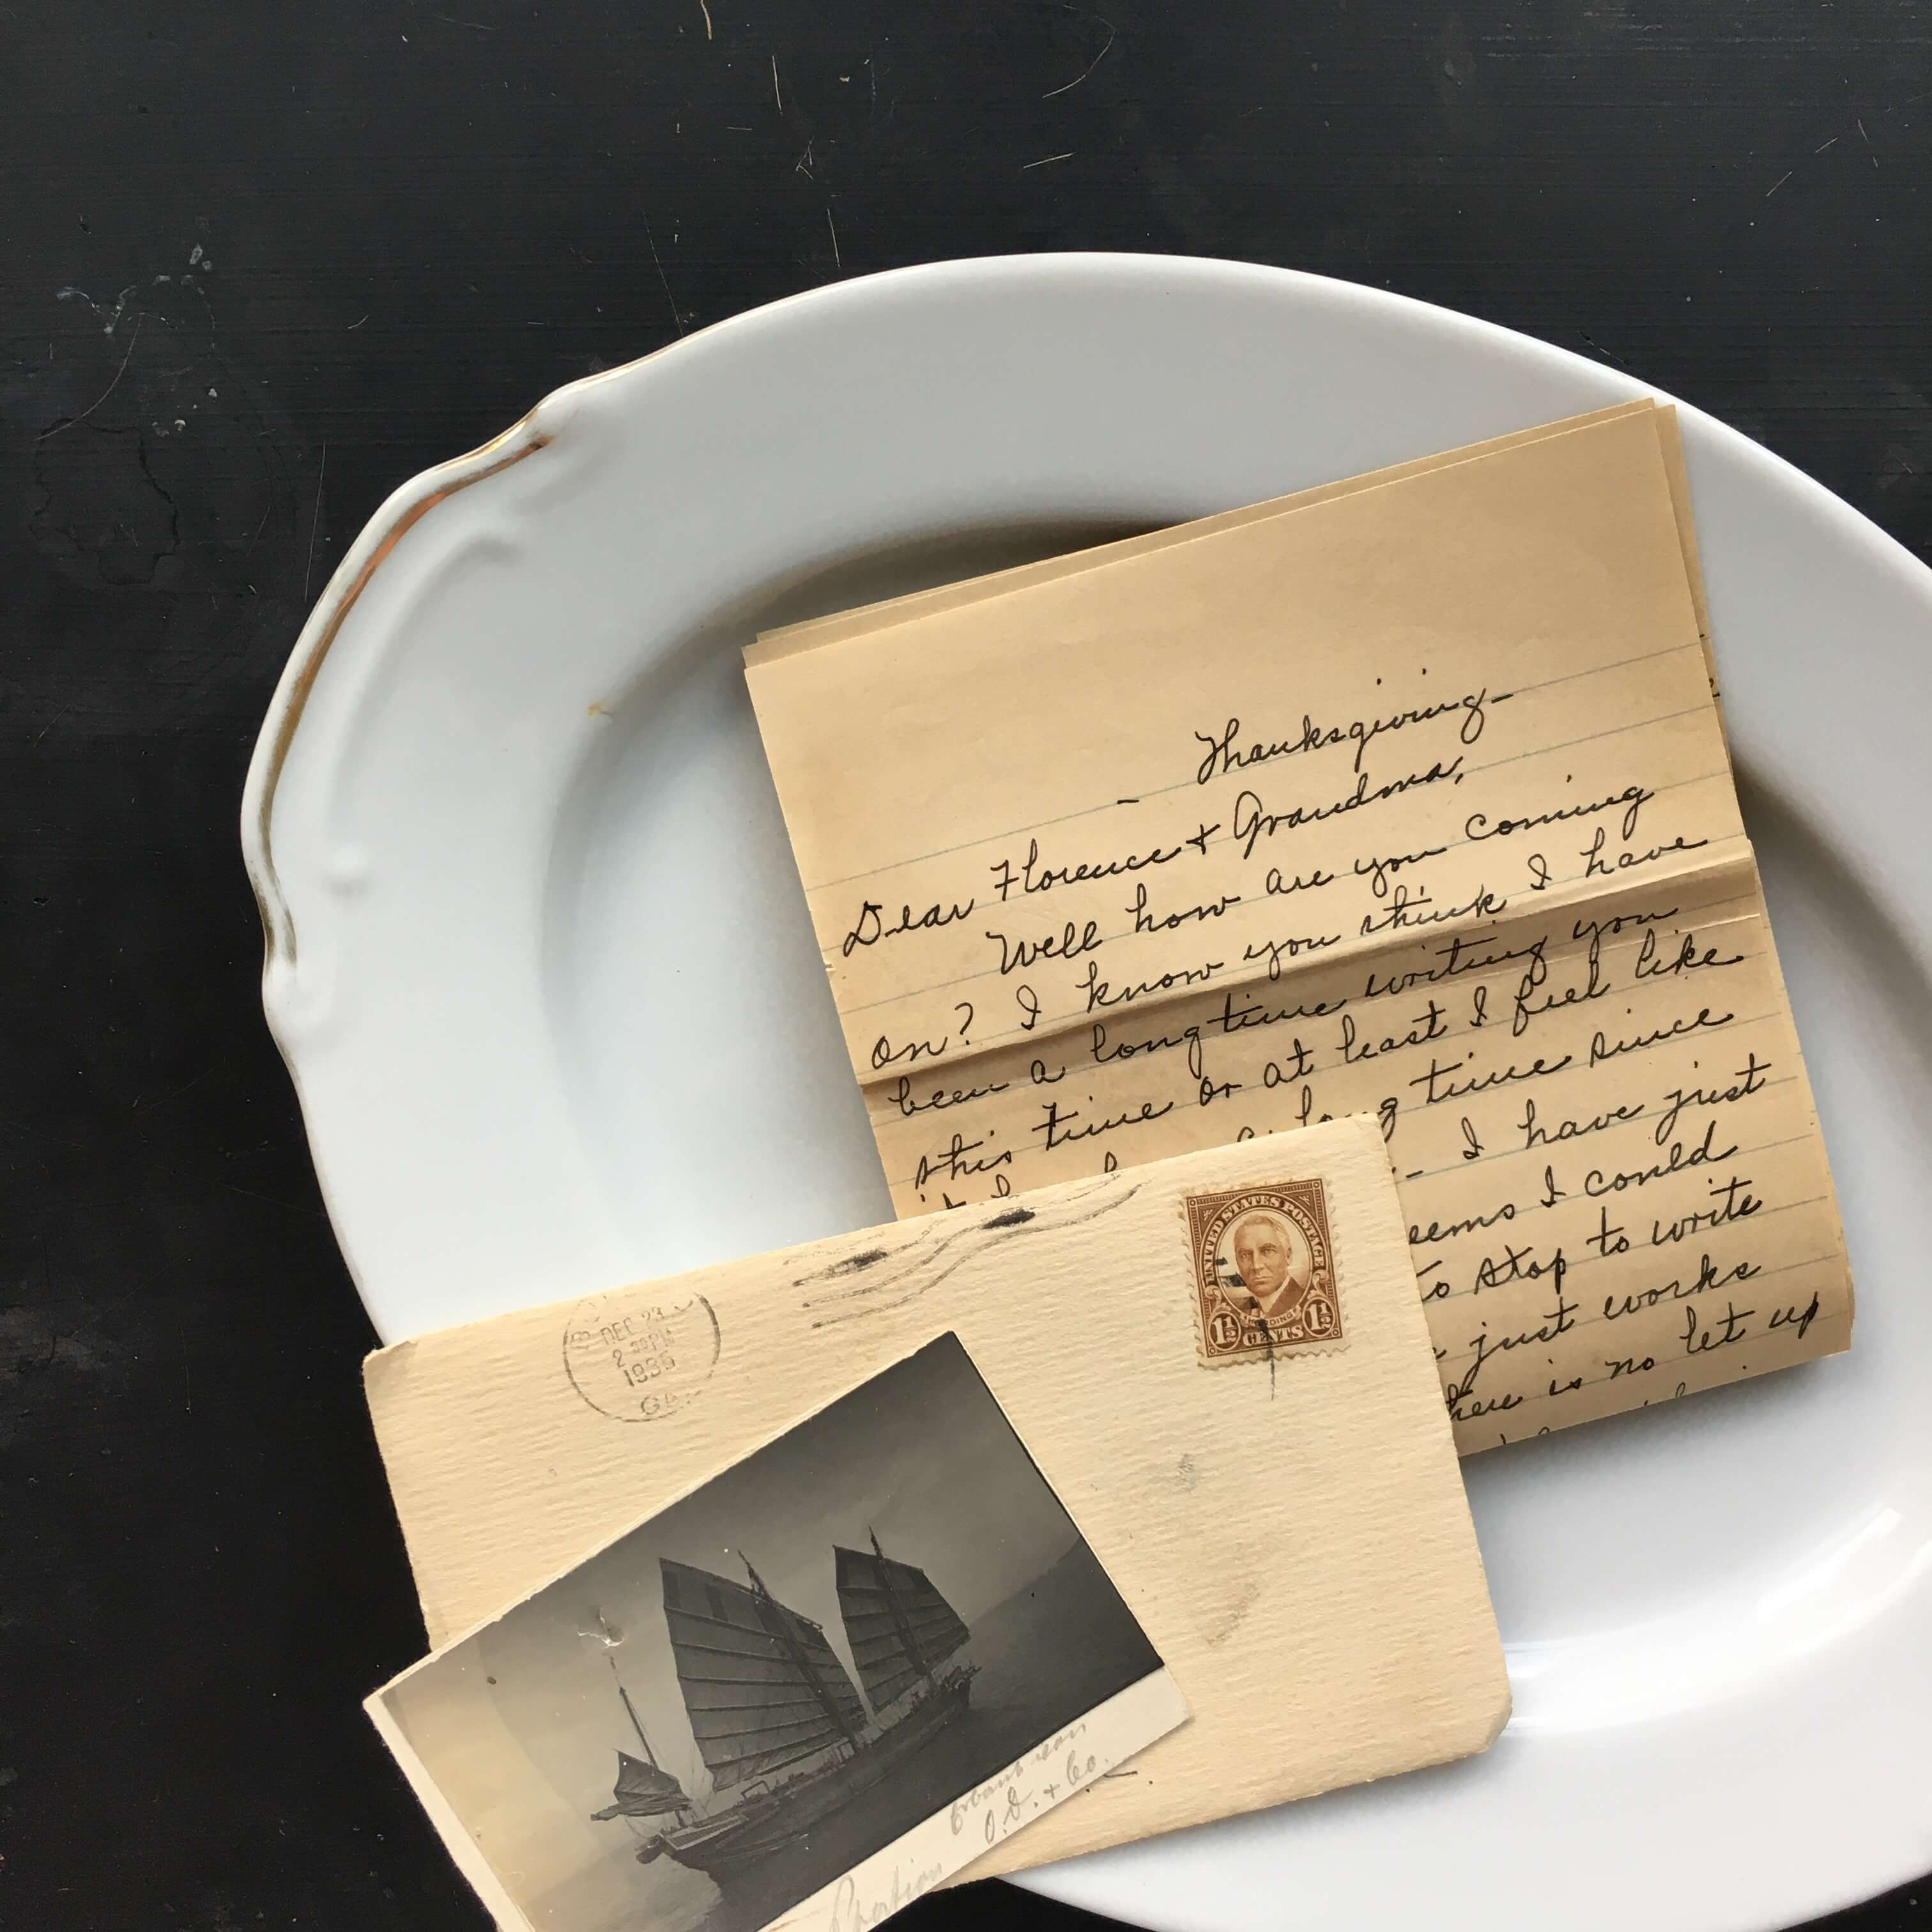 Thanksgiving -
Dear Florence & Grandma,
Well how are you coming
on? I know you think I have
been a long time writing you
this time or at least I feel like
long time since
I have just
I could
to stop to write
just works
there is no let up
DEC 23
2 30 PM
1935
GA.
UNITED STATES POSTAGE
HARDING
1½ CENTS 1½
O.D. & Co.